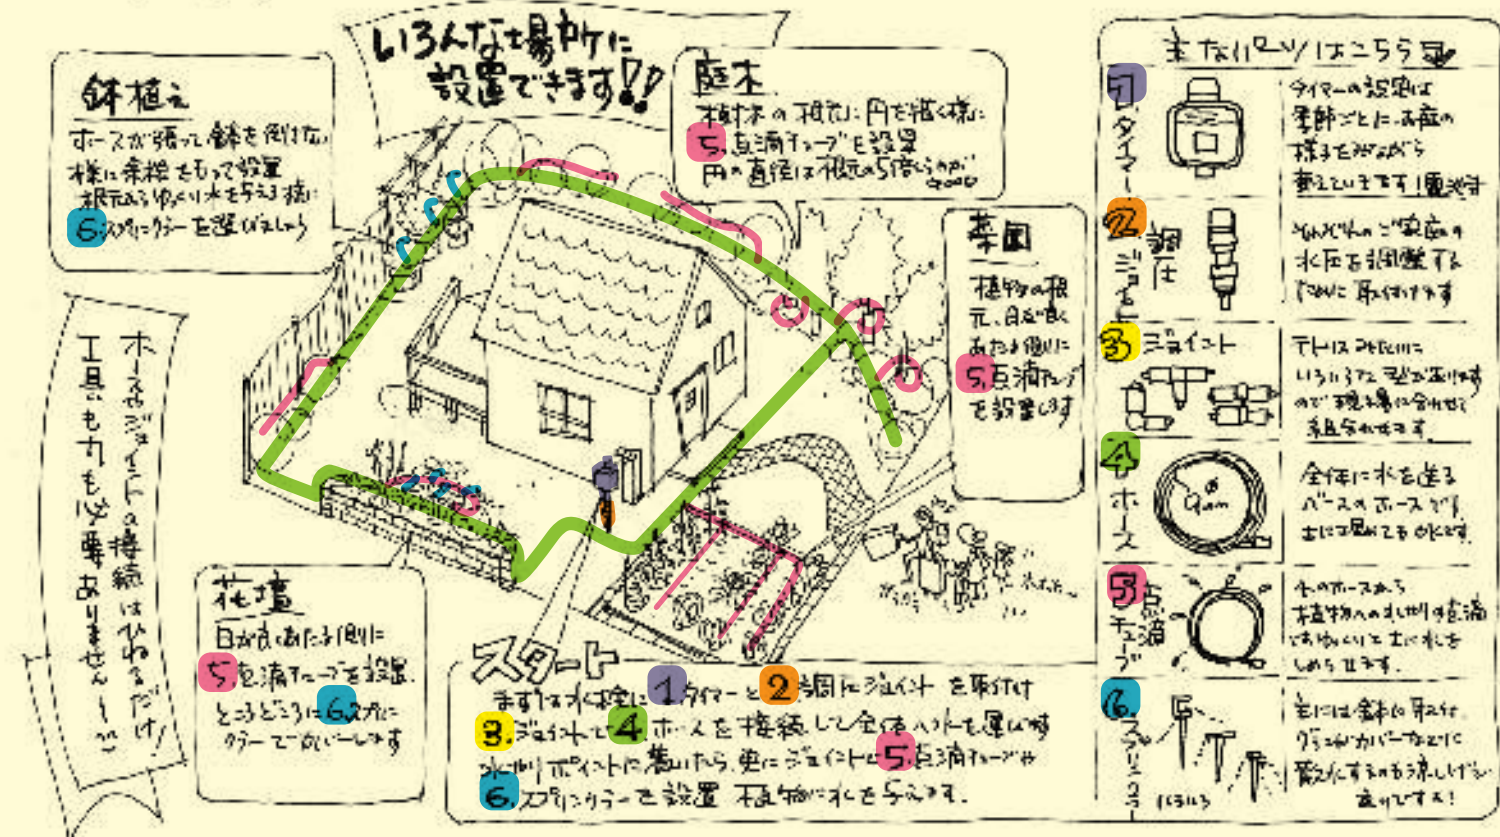 いろんな場所に
設置できます!!
鉢植え
ホースが張って鉢を倒さない
様に余裕をもって設置
根元からゆっくり水を与える様に
6.スプリンクラーを選びましょう
庭木
植木の根元に円を描く様に
5.点滴チューブを設置
円の直径は根元の5倍くらいが
GOOD
菜園
植物の根
元、日が良く
あたる側に
5.点滴チューブ
を設置します
ホースやジョイントの接続はひねるだけ!
工具も力も必要ありません
花壇
日が良くあたる側に
5.点滴チューブを設置。
ところどころに6.スプリン
クラーでカバーします
スタート
まずは水栓に1.タイマーと2.調圧ジョイントを取付け
3.ジョイントで4.ホースを接続して全体へ水を運びます
水やりポイントに着いたら、更にジョイントに5.点滴チューブや
6.スプリンクラーを設置 植物に水を与えます。
主なパーツはこちら
1.タイマー
タイマーの設定は
季節ごとに、お庭の
様子をみながら
変えていきます!
2.調圧ジョイント
それぞれのご家庭の
水圧を調整する
ために取付けます
3.ジョイント
テトリスみたいに
いろいろな型があります
ので現場に合わせて
組合わせます。
4.ホース
9mm
全体に水を送る
ベースのホースです
土に埋めてもOKです。
5.点滴チューブ
4のホースから
植物への水やりは点滴
でゆっくりと土に水を
しめらせます。
6.スプリンクラー
主には鉢に取付。
グランドカバーなどに